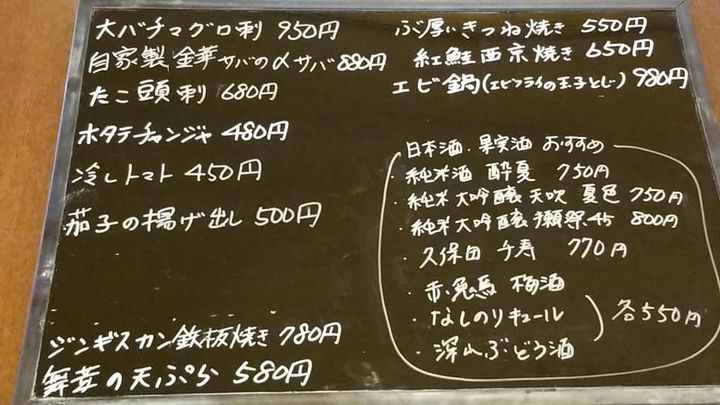 大バチマグロ刺 950円
自家製金華サバの〆サバ 880円
たこ頭刺 680円
ホタテチャンジャ 480円
冷しトマト 450円
茄子の揚げ出し 500円
ジンギスカン鉄板焼き 780円
舞茸の天ぷら 580円
ぶ厚いきつね焼き 550円
紅鮭西京焼き 650円
エビ鍋(エビフライの玉子とじ) 980円
日本酒・果実酒 おすすめ
・純米酒 酔夏 750円
・純米大吟醸 天吹 夏色 750円
・純米大吟醸 獺祭45 800円
・久保田 千寿 770円
・赤兎馬 梅酒
・なしのリキュール
・深山ぶどう酒
各550円